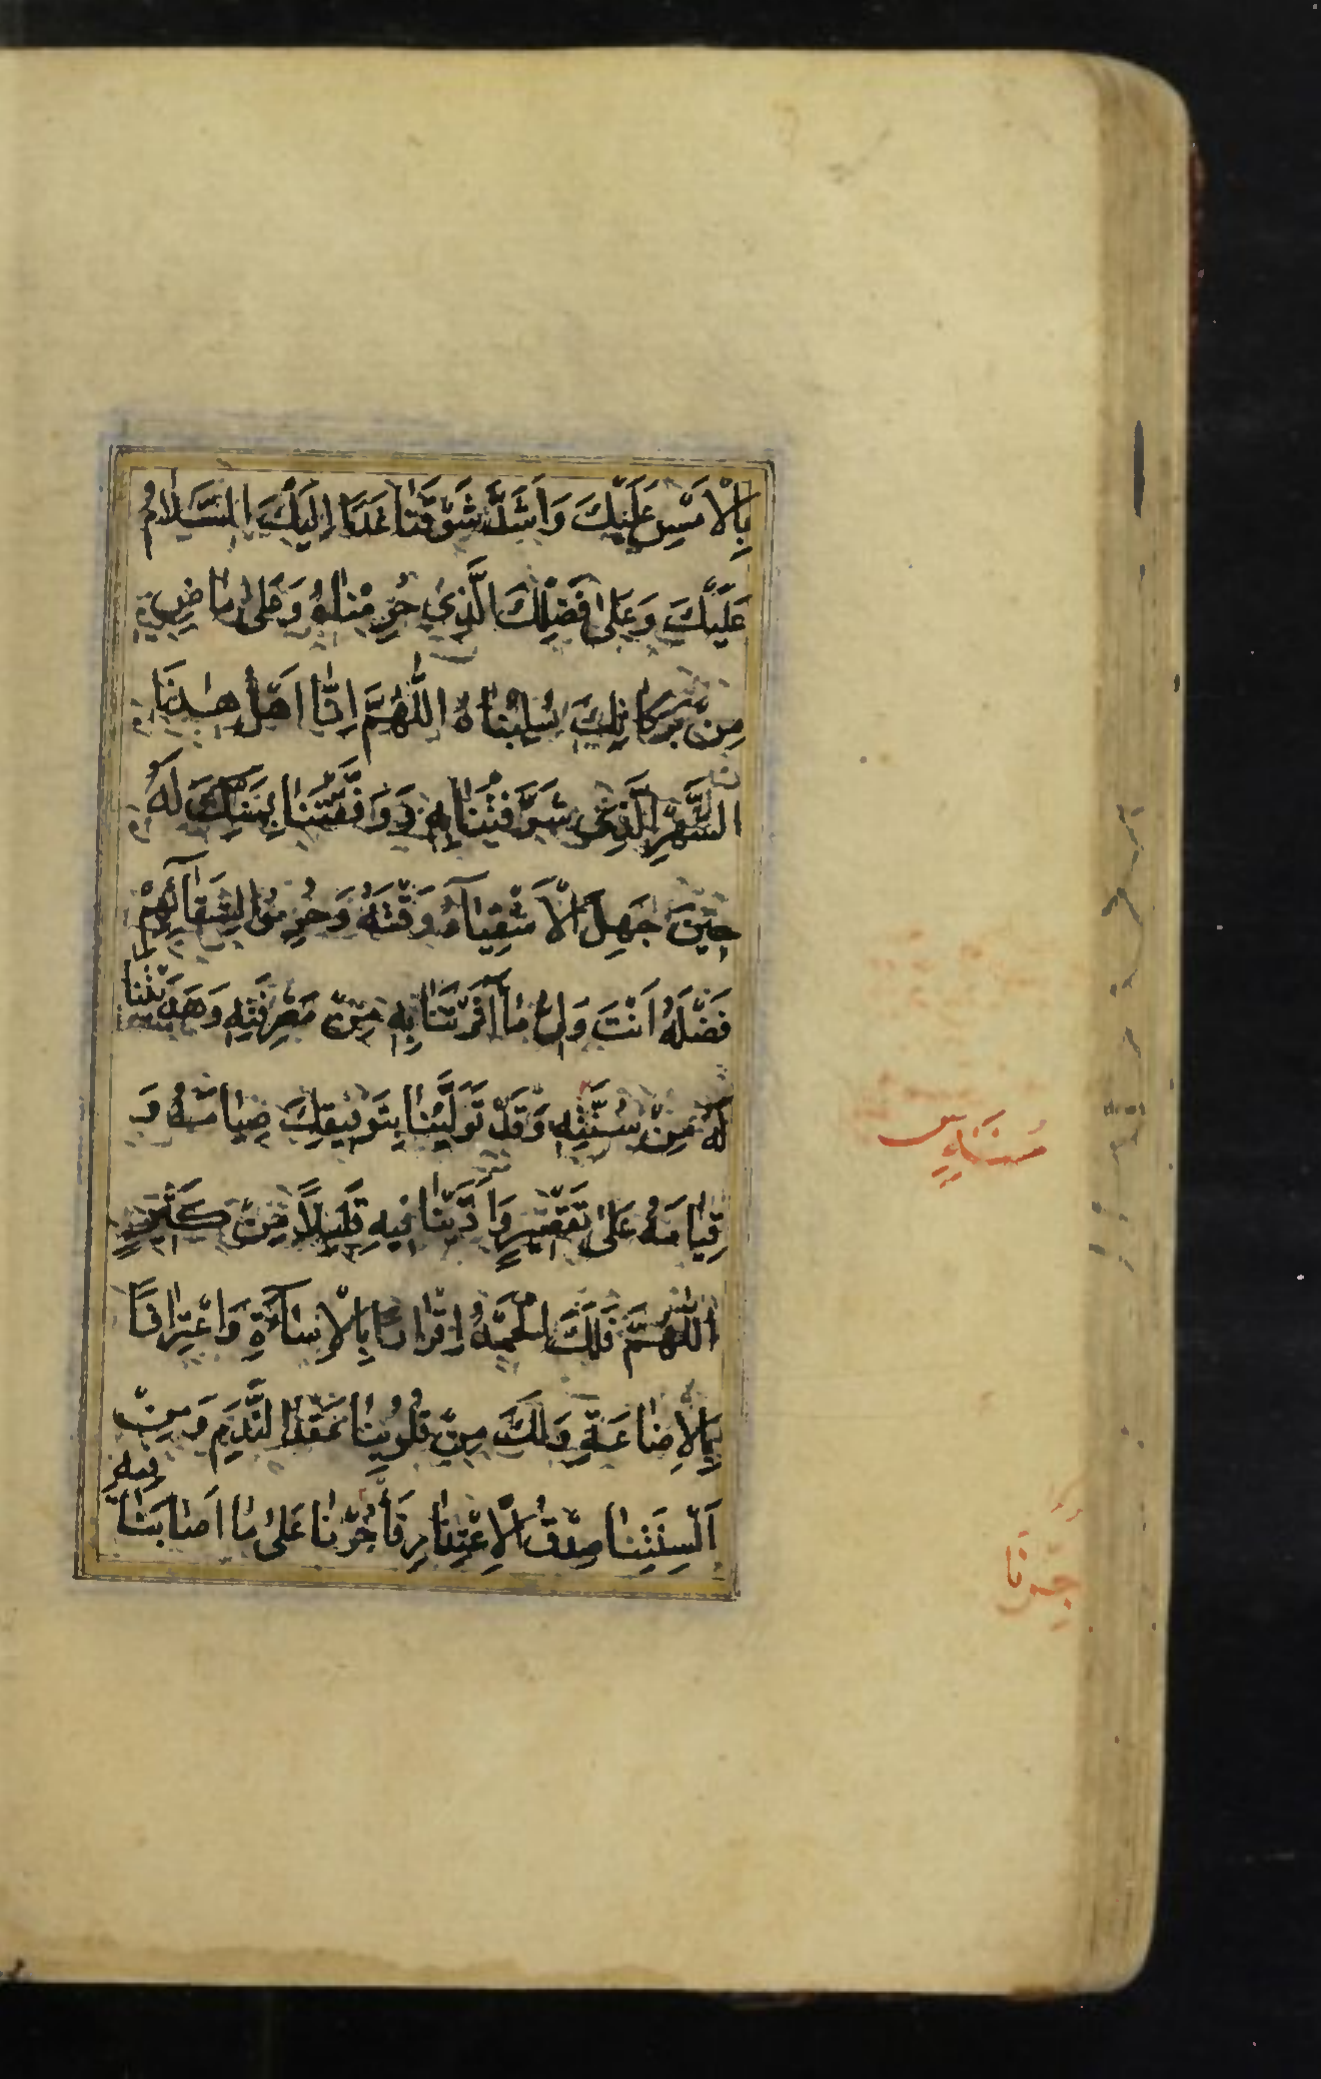 بِالْاَمْسِ عَلَيْكَ وَاَشَدَّ شَوْقَنَا غَدًا اِلَيْكَ اَلسَّلَامُ
عَلَيْكَ وَعَلىٰ فَضْلِكَ الَّذِي حُرِمْنَاهُ وَعَلىٰ مَاضٍ
مِنْ بَرَكَاتِكَ سُلِبْنَاهُ اَللّٰهُمَّ اِنَّا اَهْلُ هٰذَا
الشَّهْرِ الَّذِي شَرَّفْتَنَا بِهِ وَوَفَّقْتَنَا بِمَنِّكَ لَهُ
حِيْنَ جَهِلَ الْاَشْقِيَآءُ وَقْتَهُ وَحُرِمُوْا لِشَقَآئِهِمْ
فَضْلَهُ اَنْتَ وَلِيُّ مَا اٰثَرْتَنَا بِهِ مِنْ مَعْرِفَتِهِ وَهَدَيْتَنَا
لَهُ مِنْ سُنَّتِهِ وَقَدْ تَوَلَّيْنَا بِتَوْفِيقِكَ صِيَامَهُ وَ
قِيَامَهُ عَلىٰ تَقْصِيْرٍ وَاَدَّيْنَا فِيهِ قَلِيلًا مِنْ كَثِيْرٍ
اَللّٰهُمَّ فَلَكَ الْحَمْدُ اِقْرَارًا بِالْاِسَآءَةِ وَاعْتِرَافًا
بِالْاِضَاعَةِ وَلَكَ مِنْ قُلُوبِنَا عَقْدُ النَّدَمِ وَمِنْ
اَلْسِنَتِنَا صِدْقُ الْاِعْتِذَارِ فَأْجُرْنَا عَلىٰ مَا اَصَابَنَا
فيه